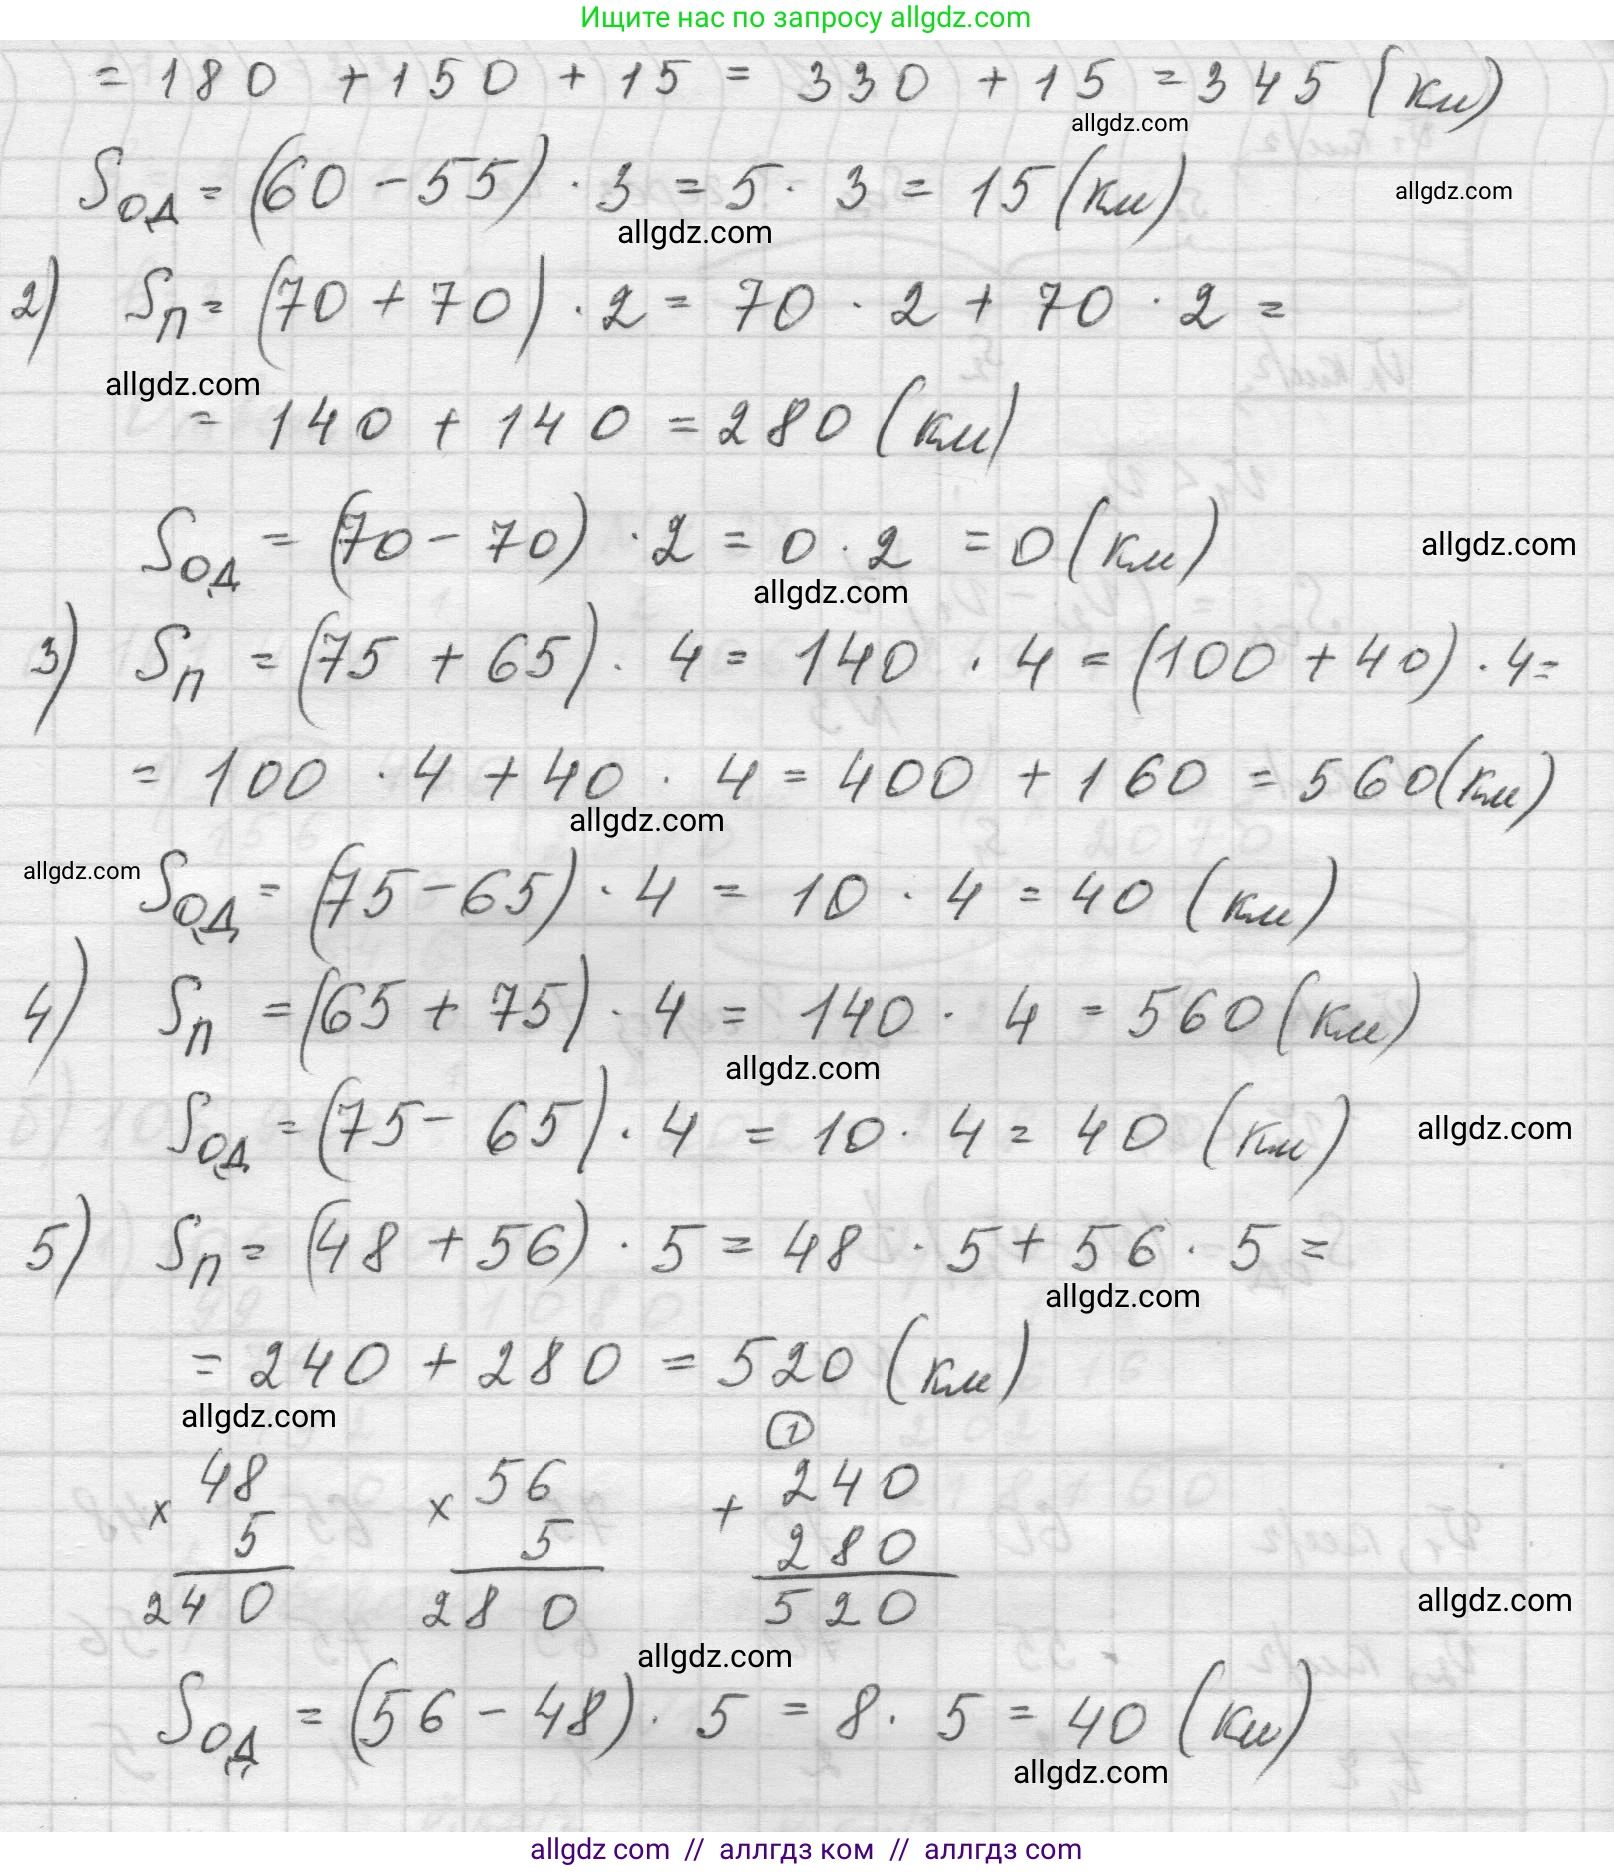 Ищите нас по запросу allgdz.com
= 180 + 150 + 15 = 330 + 15 = 345 (км)
allgdz.com
Sод = (60 - 55) · 3 = 5 · 3 = 15 (км)
allgdz.com
allgdz.com
2) Sп = (70 + 70) · 2 = 70 · 2 + 70 · 2 =
allgdz.com
= 140 + 140 = 280 (км)
Sод = (70 - 70) · 2 = 0 · 2 = 0 (км)
allgdz.com
allgdz.com
3) Sп = (75 + 65) · 4 = 140 · 4 = (100 + 40) · 4 =
= 100 · 4 + 40 · 4 = 400 + 160 = 560 (км)
allgdz.com
allgdz.com
Sод = (75 - 65) · 4 = 10 · 4 = 40 (км)
4) Sп = (65 + 75) · 4 = 140 · 4 = 560 (км)
allgdz.com
Sод = (75 - 65) · 4 = 10 · 4 = 40 (км)
allgdz.com
5) Sп = (48 + 56) · 5 = 48 · 5 + 56 · 5 =
allgdz.com
= 240 + 280 = 520 (км)
allgdz.com
1
× 48 × 56 + 240
5 5 280
240 280 520
allgdz.com
allgdz.com
Sод = (56 - 48) · 5 = 8 · 5 = 40 (км)
allgdz.com
allgdz com // аллгдз ком // аллгдз com